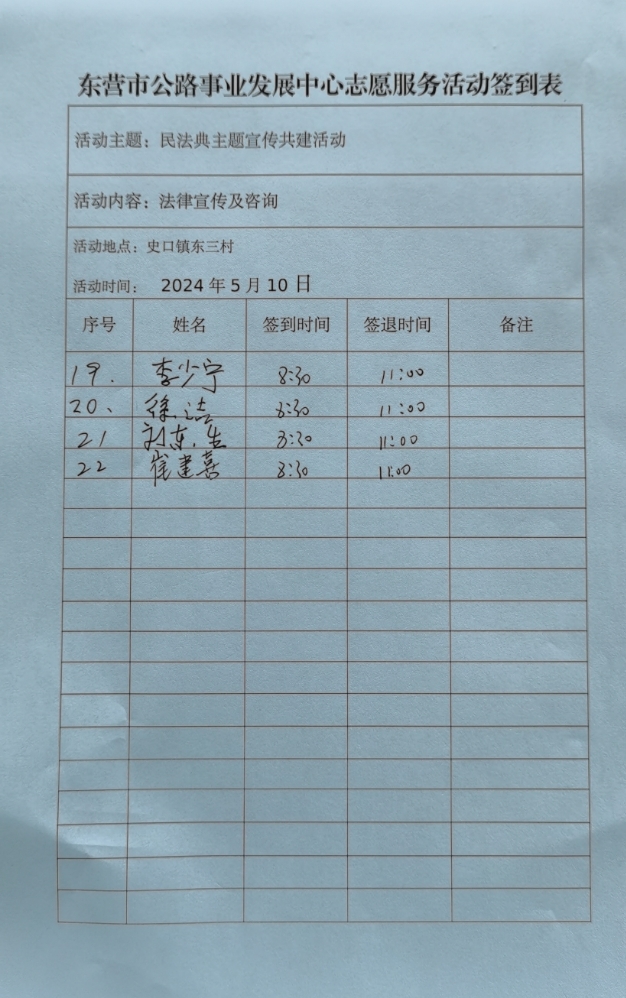 东营市公路事业发展中心志愿服务活动签到表
活动主题：民法典主题宣传共建活动
活动内容：法律宣传及咨询
活动地点：史口镇东三村
活动时间： 2024年5月10日
序号 姓名 签到时间 签退时间 备注
19. 李少宁 8:30 11:00
20、 徐洁 8:30 11:00
21 刘东生 8:30 11:00
22 崔建喜 8:30 11:00